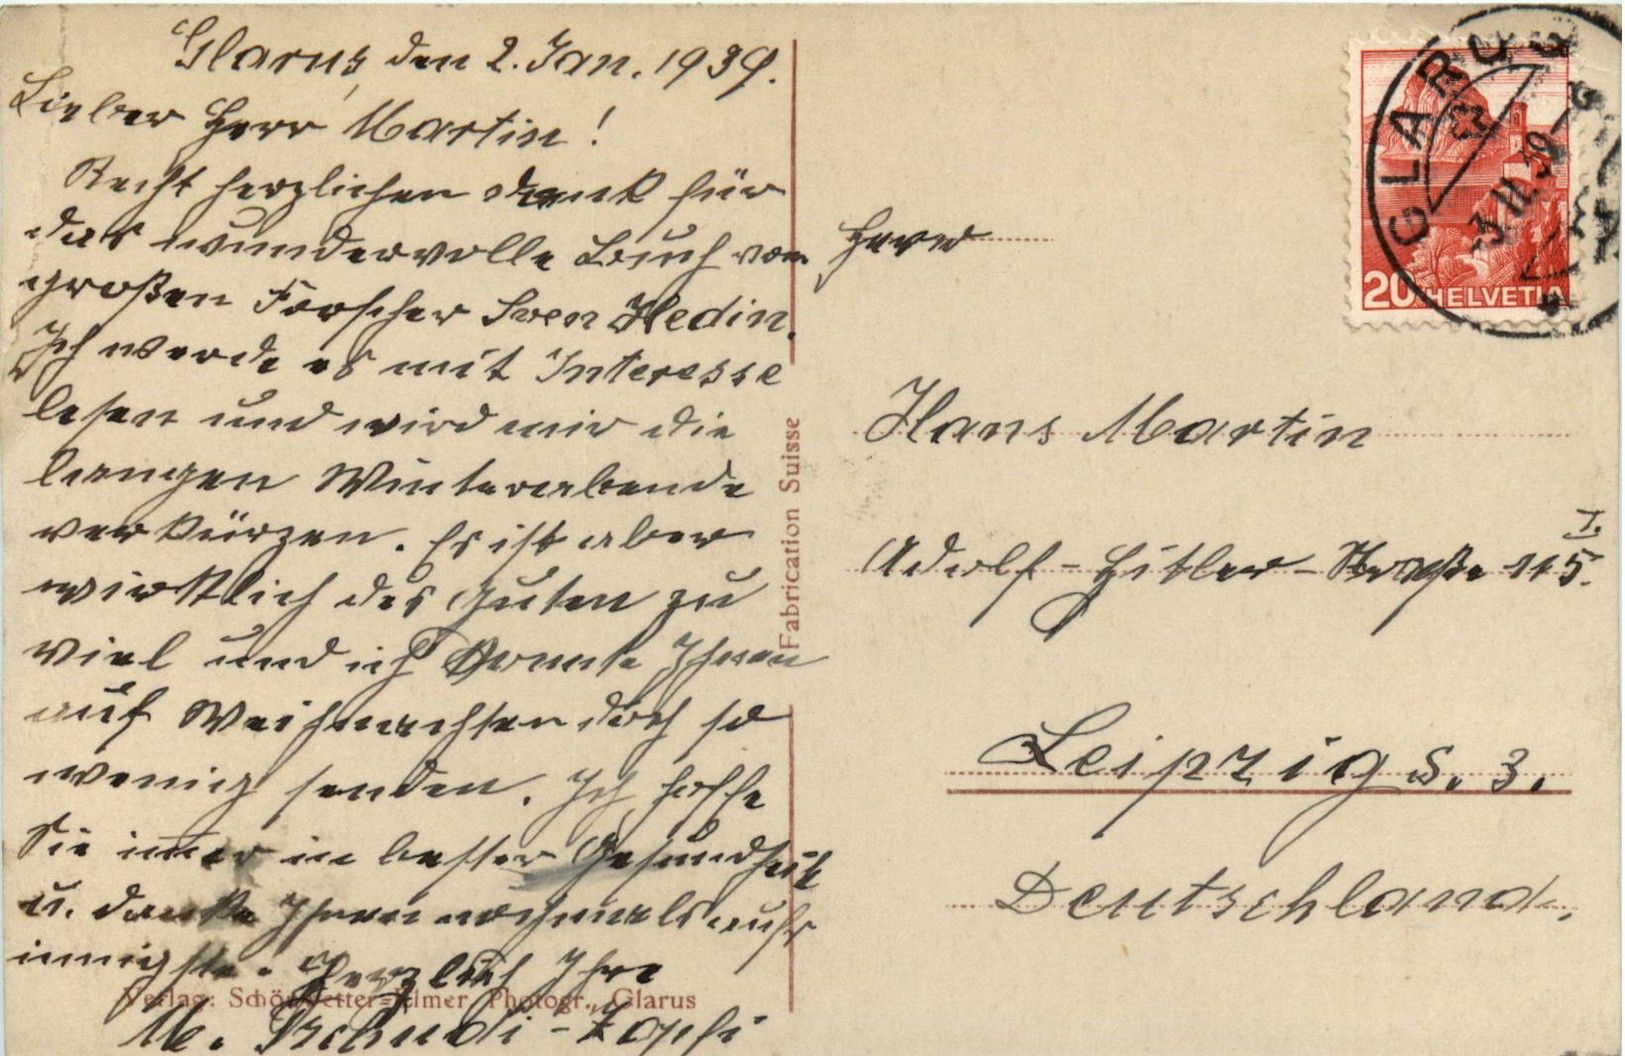 Glarus, den 2. Jan. 1939.
Lieber Herr Martin!
Recht herzlichen Dank für
das wundervolle Buch vom
großen Forscher Sven Hedin.
Ich werde es mit Interesse
lesen und wird mir die
langen Winterabende
verkürzen. Es ist aber
wirklich des Guten zu
viel und ich konnte Ihnen
auf Weihnachten doch so
wenig senden. Ich hoffe
Sie imer in bester Gesundheit
u. danke Ihnen nochmals aufs
innigste. Herzlich Ihre
M. Tschudi-Zopfi
Verlag: Schönwetter=Elmer, Photogr., Glarus
Fabrication Suisse
GLARUS
3 II 39
20 HELVETIA
Herrn
Hans Martin
Adolf-Hitler-Straße 115. I.
Leipzig S. 3.
Deutschland.